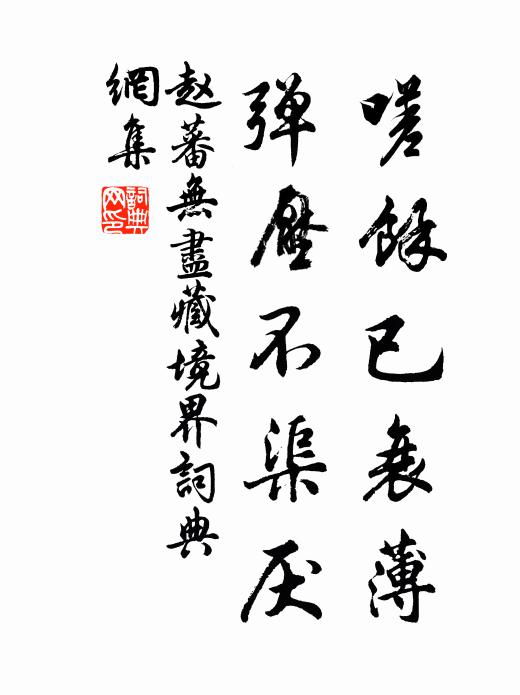 嗟餘已衰薄
彈壓不渠厌
赵蕃無盡藏境界詞典
網集
詞典網印